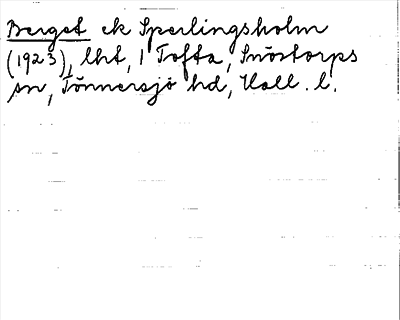 Berget ek Sperlingsholm
(1923), lht, 1 Tofta, Snöstorps
sn, Tönnersjö hd, Hall. l.